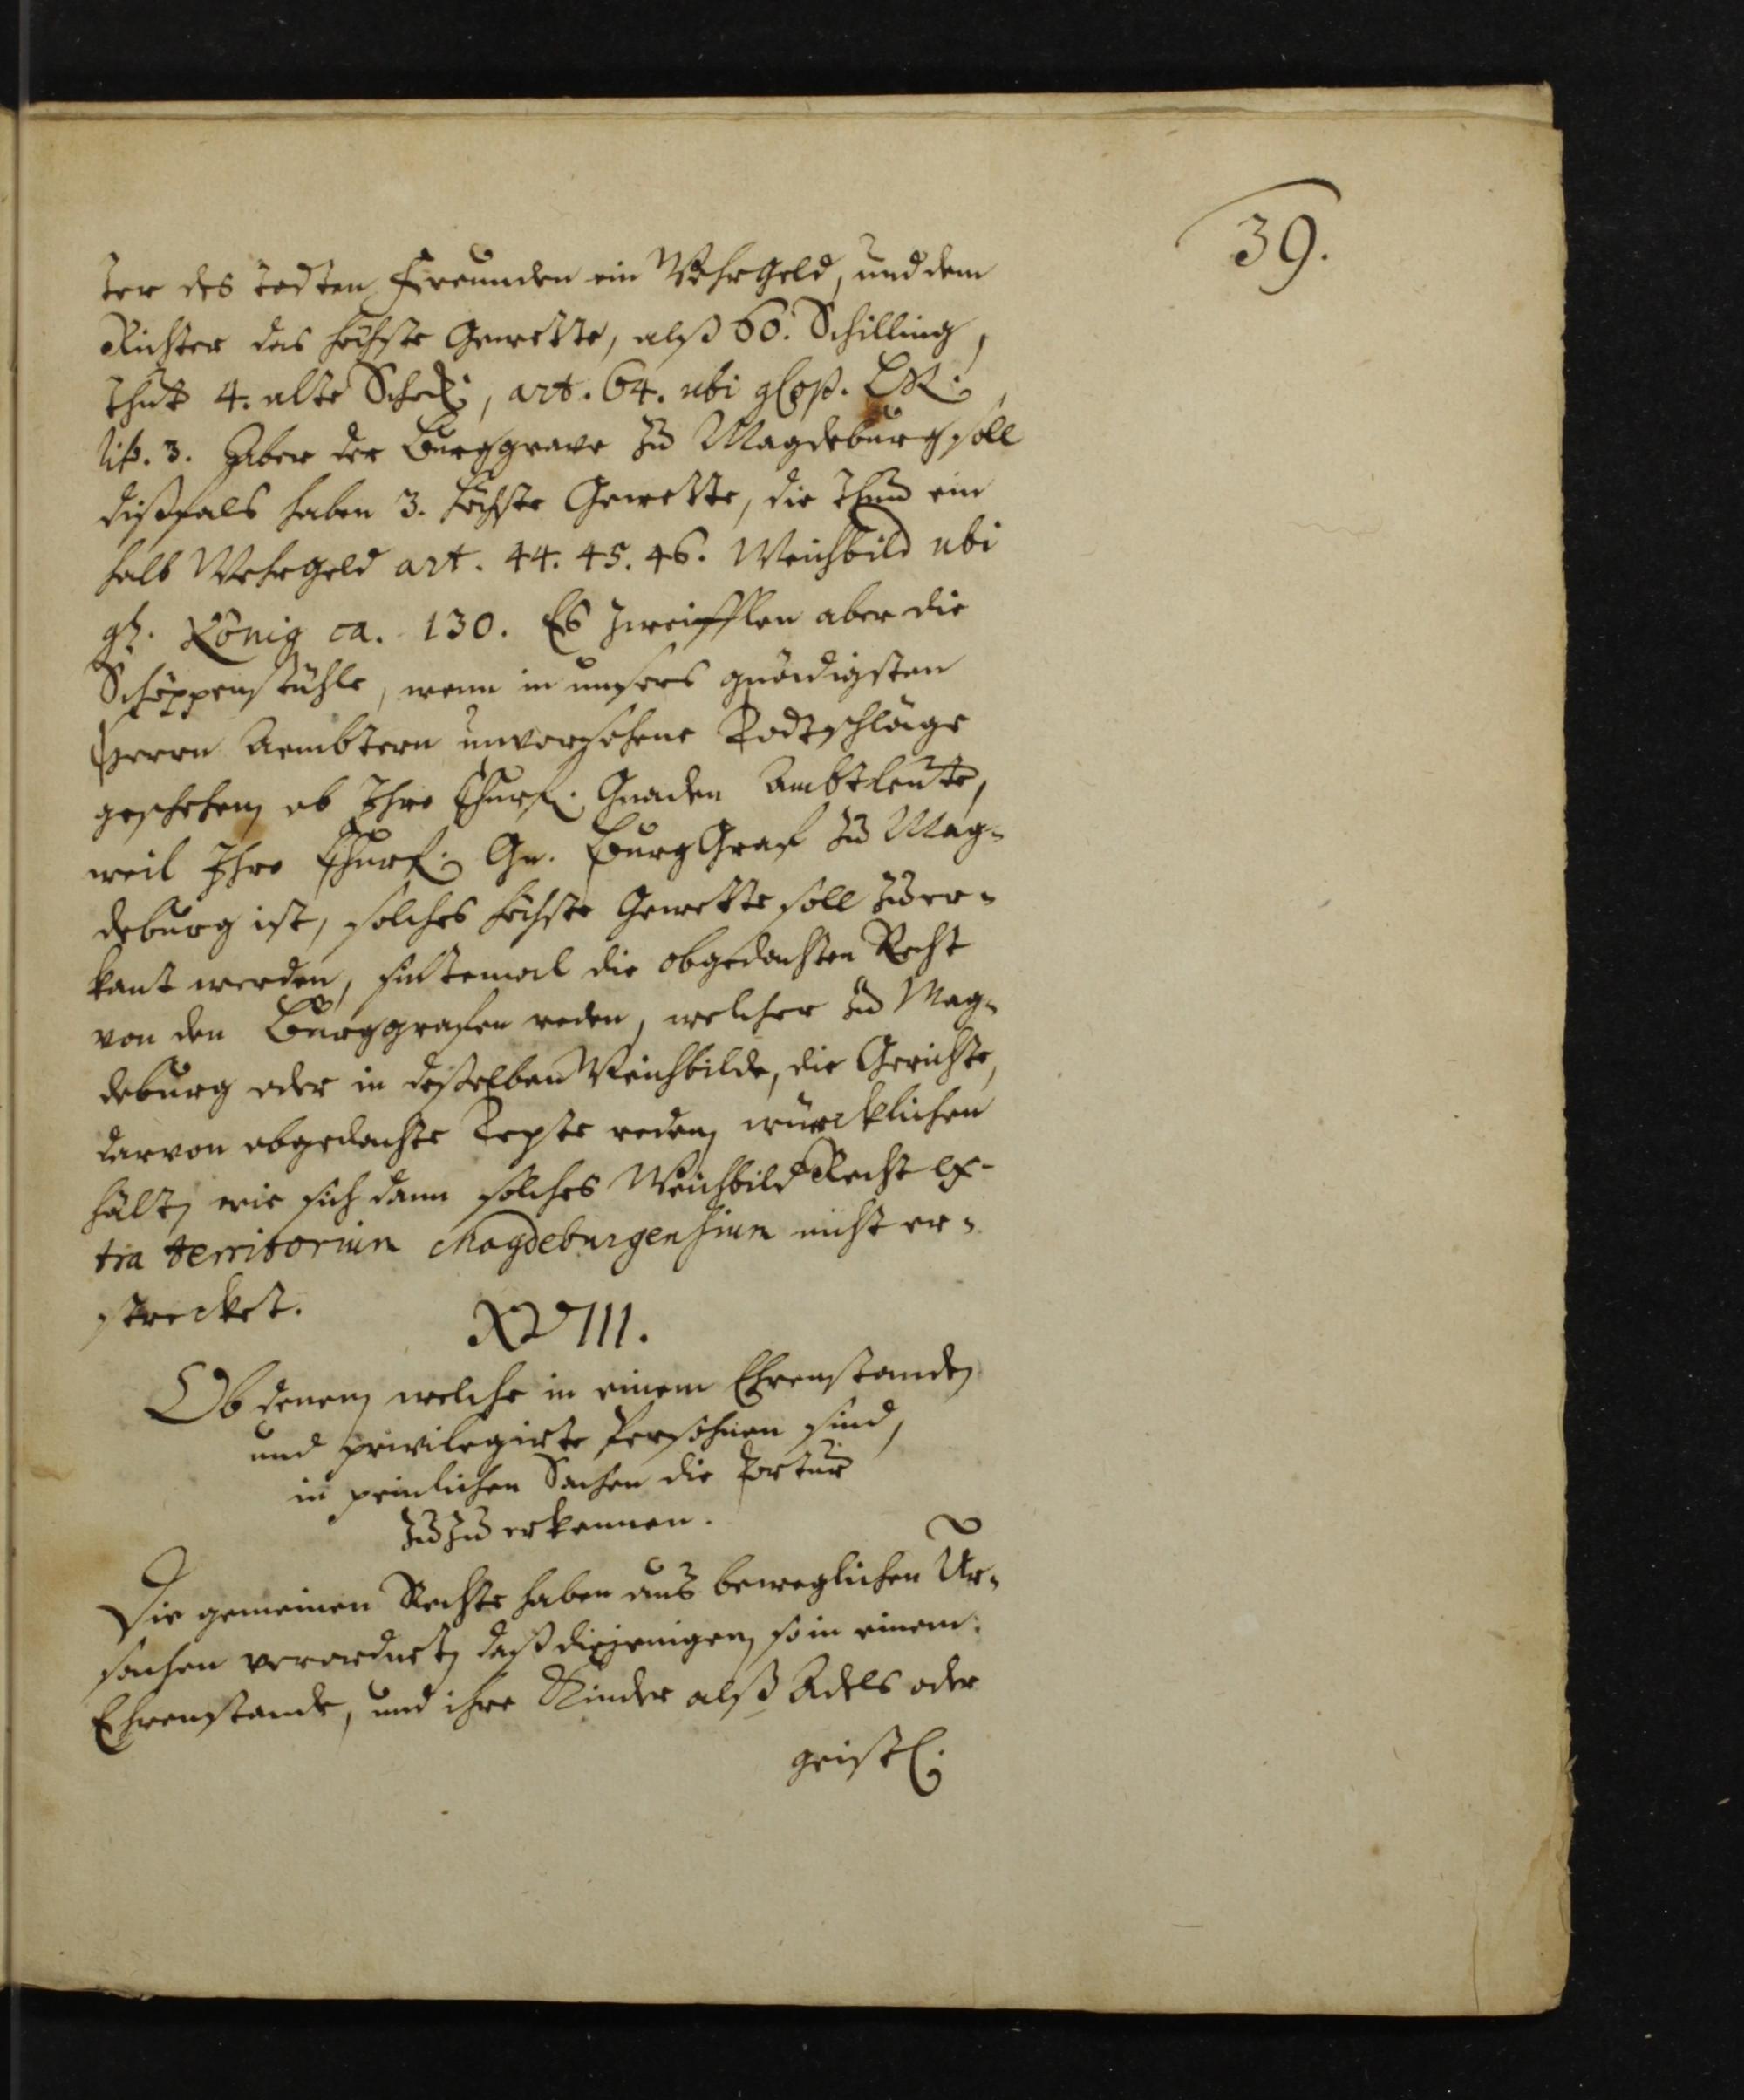 39.
ter des todten Freunden ein Wehrgeld, und dem
Richter das höchste Gewette, alß 60. Schilling,
thut 4. alte Schock, art. 64. ubi gloß. LR.
lib. 3. Aber der Burggrave zu Magdeburg soll
dißfals haben 3. höchste Gewette, die thun ein
halb Wehrgeld art. 44. 45. 46. Weichbild ubi
gl. König ca. 130. Es zweifflen aber die
Schöppenstühle, wenn in unsers gnädigsten
Herrn Aembtern unversehene Todtschläge
geschehen, ob Ihro Churf. Gnaden Ambtleute,
weil Ihro Churf. Gn. BurgGraf zu Mag-
deburg ist, solches höchste Gewette soll zuer-
kant werden, sintemal die obgedachten Recht
von den Burggrafen reden, welcher zu Mag-
deburg oder in desselben Weichbilde, die Gerichte,
darvon obgedachte Texte reden, würcklichen
hält, wie sich dann solches Weichbild Recht ex-
tra territorium Magdeburgensium nicht er-
strecket.
XVIII.
Ob denen, welche in einem Ehrenstande,
und privilegirte Persohnen sind,
in peinlichen Sachen die Tortur
zuzu erkennen.
Die gemeinen Rechte haben aus beweglichen Ur-
sachen verordnet, daß diejenigen, so in einem
Ehrenstande, und ihre Kinder alß Adels oder
geistl.